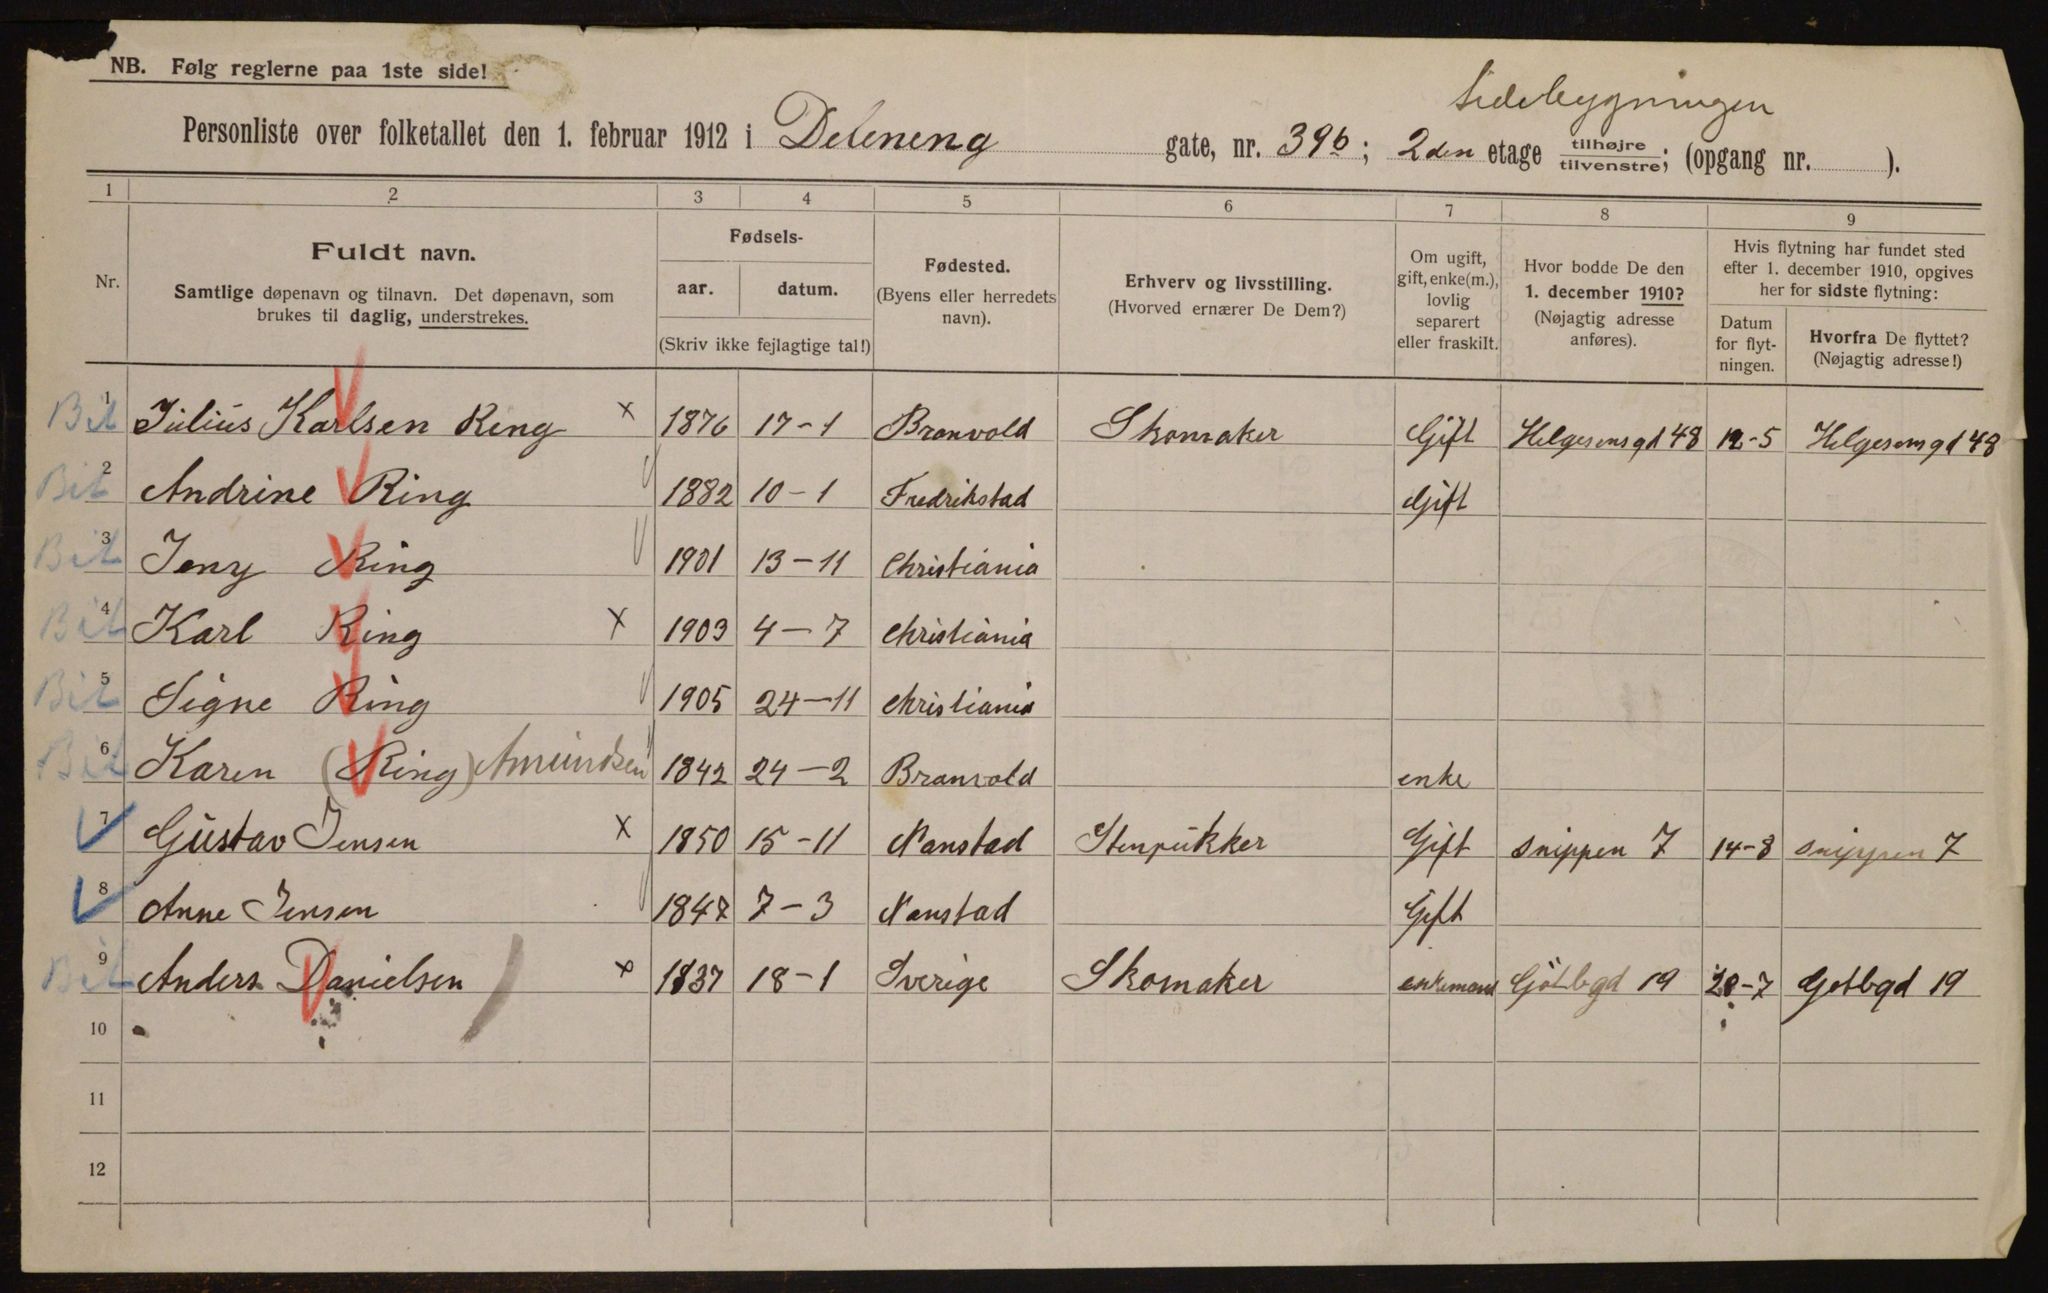 NB. Følg reglerne paa 1ste side!
Sidebygningen
Personliste over folketallet den 1. februar 1912 i Deleneng gate, nr. 39b; 2den etage tilhøjre/tilvenstre; (opgang nr. ).
1 2 3 4 5 6 7 8 9
Nr.
Fuldt navn.
Samtlige døpenavn og tilnavn. Det døpenavn, som
brukes til daglig, understrekes.
Fødsels-
aar. datum.
(Skriv ikke fejlagtige tal!)
Fødested.
(Byens eller herredets
navn).
Erhverv og livsstilling.
(Hvorved ernærer De Dem?)
Om ugift,
gift, enke(m.),
lovlig
separert
eller fraskilt.
Hvor bodde De den
1. december 1910?
(Nøjagtig adresse
anføres).
Hvis flytning har fundet sted
efter 1. december 1910, opgives
her for sidste flytning:
Datum
for flyt-
ningen.
Hvorfra De flyttet?
(Nøjagtig adresse!)
Bit 1 Julius Karlsen Ring x 1876 17-1 Branvold Skomaker Gift Helgesensgd 48 12-5 Helgesensgd 48
Bit 2 Andrine Ring 1882 10-1 Fredrikstad Gift
Bit 3 Jeny Ring 1901 13-11 Christiania
Bit 4 Karl Ring x 1903 4-7 Christiania
Bit 5 Signe Ring 1905 24-11 Christiania
Bit 6 Karen (Ring) Amundsen 1842 24-2 Branvold enke
7 Gustav Jensen x 1850 15-11 Nanstad Stenpukker Gift Snippen 7 14-8 Snippen 7
8 Anne Jensen 1847 7-3 Nanstad Gift
Bit 9 Anders Danielsen x 1837 18-1 Sverige Skomaker enkemand Gøtbgd 19 28-7 Gøtbgd 19
10
11
12